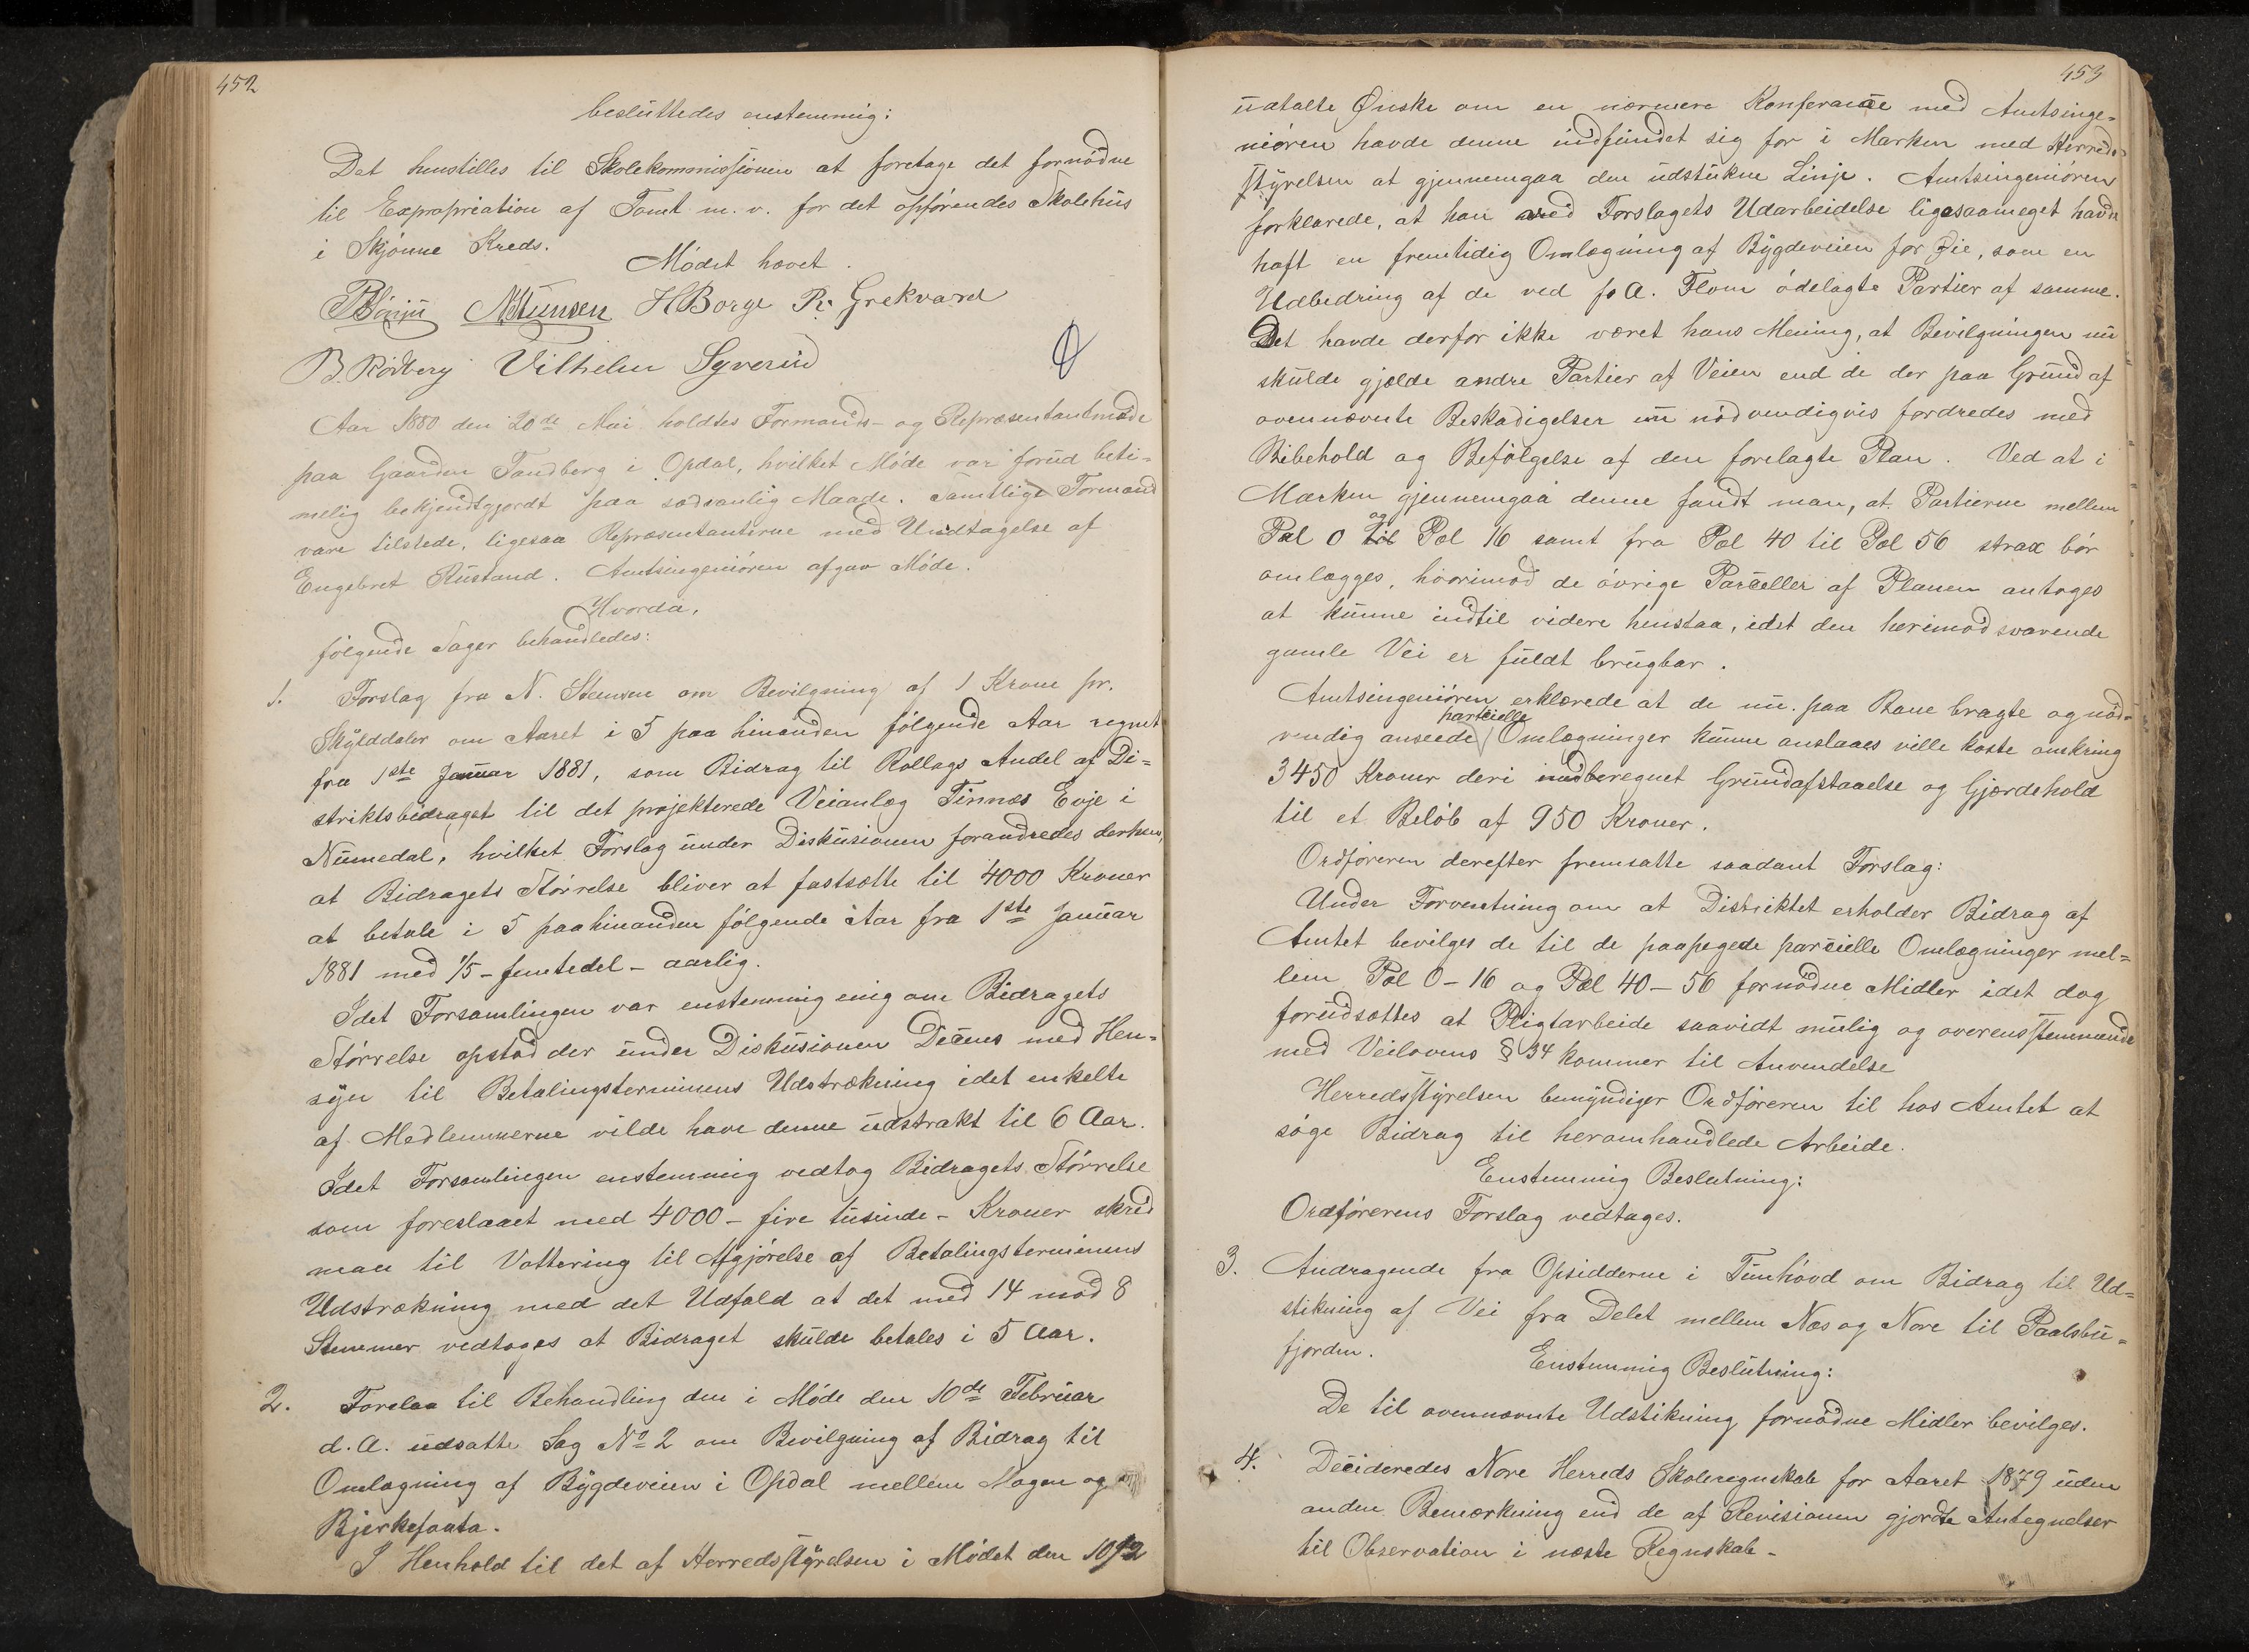 452
besluttedes enstemmig:
Det henstilles til Skolekommissionen at foretage det fornødne
til Expropriation af Tomt m. v. for det opførendes Skolehus
i Skjønne Kreds.
Mødet hævet.
H Borge
Vilhelm Syverud
Aar 1880 den 20de Mai holdtes Formands- og Repræsentantmøde
paa Gaarden Tandberg i Opdal, hvilket Møde var forud beti=
melig bekjendtgjordt paa sædvanlig Maade. Samtlige Formænd
vare tilstede, ligesaa Repræsentanterne med Undtagelse af
Engebret Rustand. Amtsingeniøren afgav Møde.
Hvorda,
følgende Sager behandledes:
1. Forslag fra N. Steensen om Bevilgning af 1 Krone pr.
Skylddaler om Aaret i 5 paa hinanden følgende Aar regnet
fra 1ste Januar 1881, som Bidrag til Rollags Andel af Di=
striktsbidraget til det projekterede Veianlæg Tinnæs Evje i
Numedal, hvilket Forslag under Diskusionen forandredes derhen,
at Bidragets Størrelse bliver at fastsætte til 4000 Kroner
at betale i 5 paahinanden følgende Aar fra 1ste Januar
1881 med 1/5 - femtedel - aarlig.
Idet Forsamlingen var enstemmig enig om Bidragets
Størrelse opstod der under Diskusionen Decens med Hen=
syn til Betalingsterminens Udstrækning idet enkelte
af Medlemmerne vilde have denne udstrakt til 6 Aar.
Idet Forsamlingen enstemmig vedtog Bidragets Størrelse
som foreslaaet med 4000 - fire tusinde - Kroner skred
man til Vottering til Afgjørelse af Betalingsterminens
Udstrækning med det Udfald at det med 14 mod 8
Stemmer vedtoges at Bidraget skulde betales i 5 Aar.
2. Forelaa til Behandling den i Møde den 10de Februar
d. A. udsatte Sag No 2 om Bevilgning af Bidrag til
Omlægning af Bygdeveien i Opdal mellem Mogen og
Bjerkefonta.
I Henhold til det af Herredsstyrelsen i Mødet den 10/2
453
udtalte Ønske om en nærmere Konferance med Amtsinge=
niøren havde denne indfundet sig for i Marken med Herreds=
styrelsen at gjennemgaa den udstukne Linje. Amtsingeniøren
forklarede, at han ved Forslagets Udarbeidelse ligesaameget havde
haft en fremtidig Omlægning af Bygdeveien for Øie, som en
Udbedring af de ved f. A. Flom ødelagte Partier af samme.
Det havde derfor ikke været hans Mening, at Bevilgningen nu
skulde gjælde andre Partier af Veien end de der paa Grund af
ovennævnte Beskadigelser nu nødvendigvis fordredes med
Bibehold og Befølgelse af den forelagte Plan. Ved at i
Marken gjennemgaa denne fandt man, at Partierne mellem
og
Pæl 0 til Pæl 16 samt fra Pæl 40 til Pæl 56 strax bør
omlægges, hvorimod de øvrige Parceller af Planen antoges
at kunne indtil videre henstaa, idet den herimod svarende
gamle Vei er fuldt brugbar.
Amtsingeniøren erklærede at de nu paa Bane bragte og nød=
parcielle
vendig anseede Omlægninger kunne anslaaes ville koste omkring
3450 Kroner deri indberegnet Grundafstaaelse og Gjærdehold
til et Beløb af 950 Kroner.
Ordføreren derefter fremsatte saadant Forslag:
Under Forventning om at Distriktet erholder Bidrag af
Amtet bevilges de til de paapegede parcielle Omlægninger mel=
lem Pæl 0 - 16 og Pæl 40 - 56 fornødne Midler idet dog
forudsættes at Pligtarbeide saavidt mulig og overensstemmende
med Veilovens § 34 kommer til Anvendelse
Herredsstyrelsen bemyndiger Ordføreren til hos Amtet at
søge Bidrag til heromhandlede Arbeide.
Enstemmig Beslutning:
Ordførerens Forslag vedtages.
3. Andragende fra Opsidderne i Tunhøvd om Bidrag til Ud=
stikning af Vei fra Delet mellem Næs og Nore til Paalsbu=
fjorden.
Enstemmig Beslutning:
De til ovennævnte Udstikning fornødne Midler bevilges.
4. Decideredes Nore Herreds Skoleregnskab for Aaret 1879 uden
anden Bemærkning end de af Revisionen gjordte Antegnelser
til Observation i næste Regnskab -